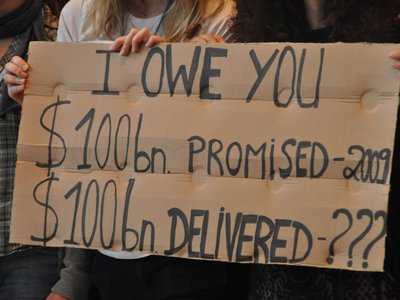 I OWE YOU
$100bn. PROMISED-2009
$100bn. DELIVERED-???